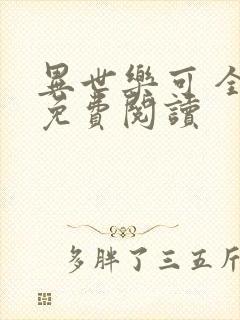 異世樂可 全
免費閱讀
多胖了三五斤